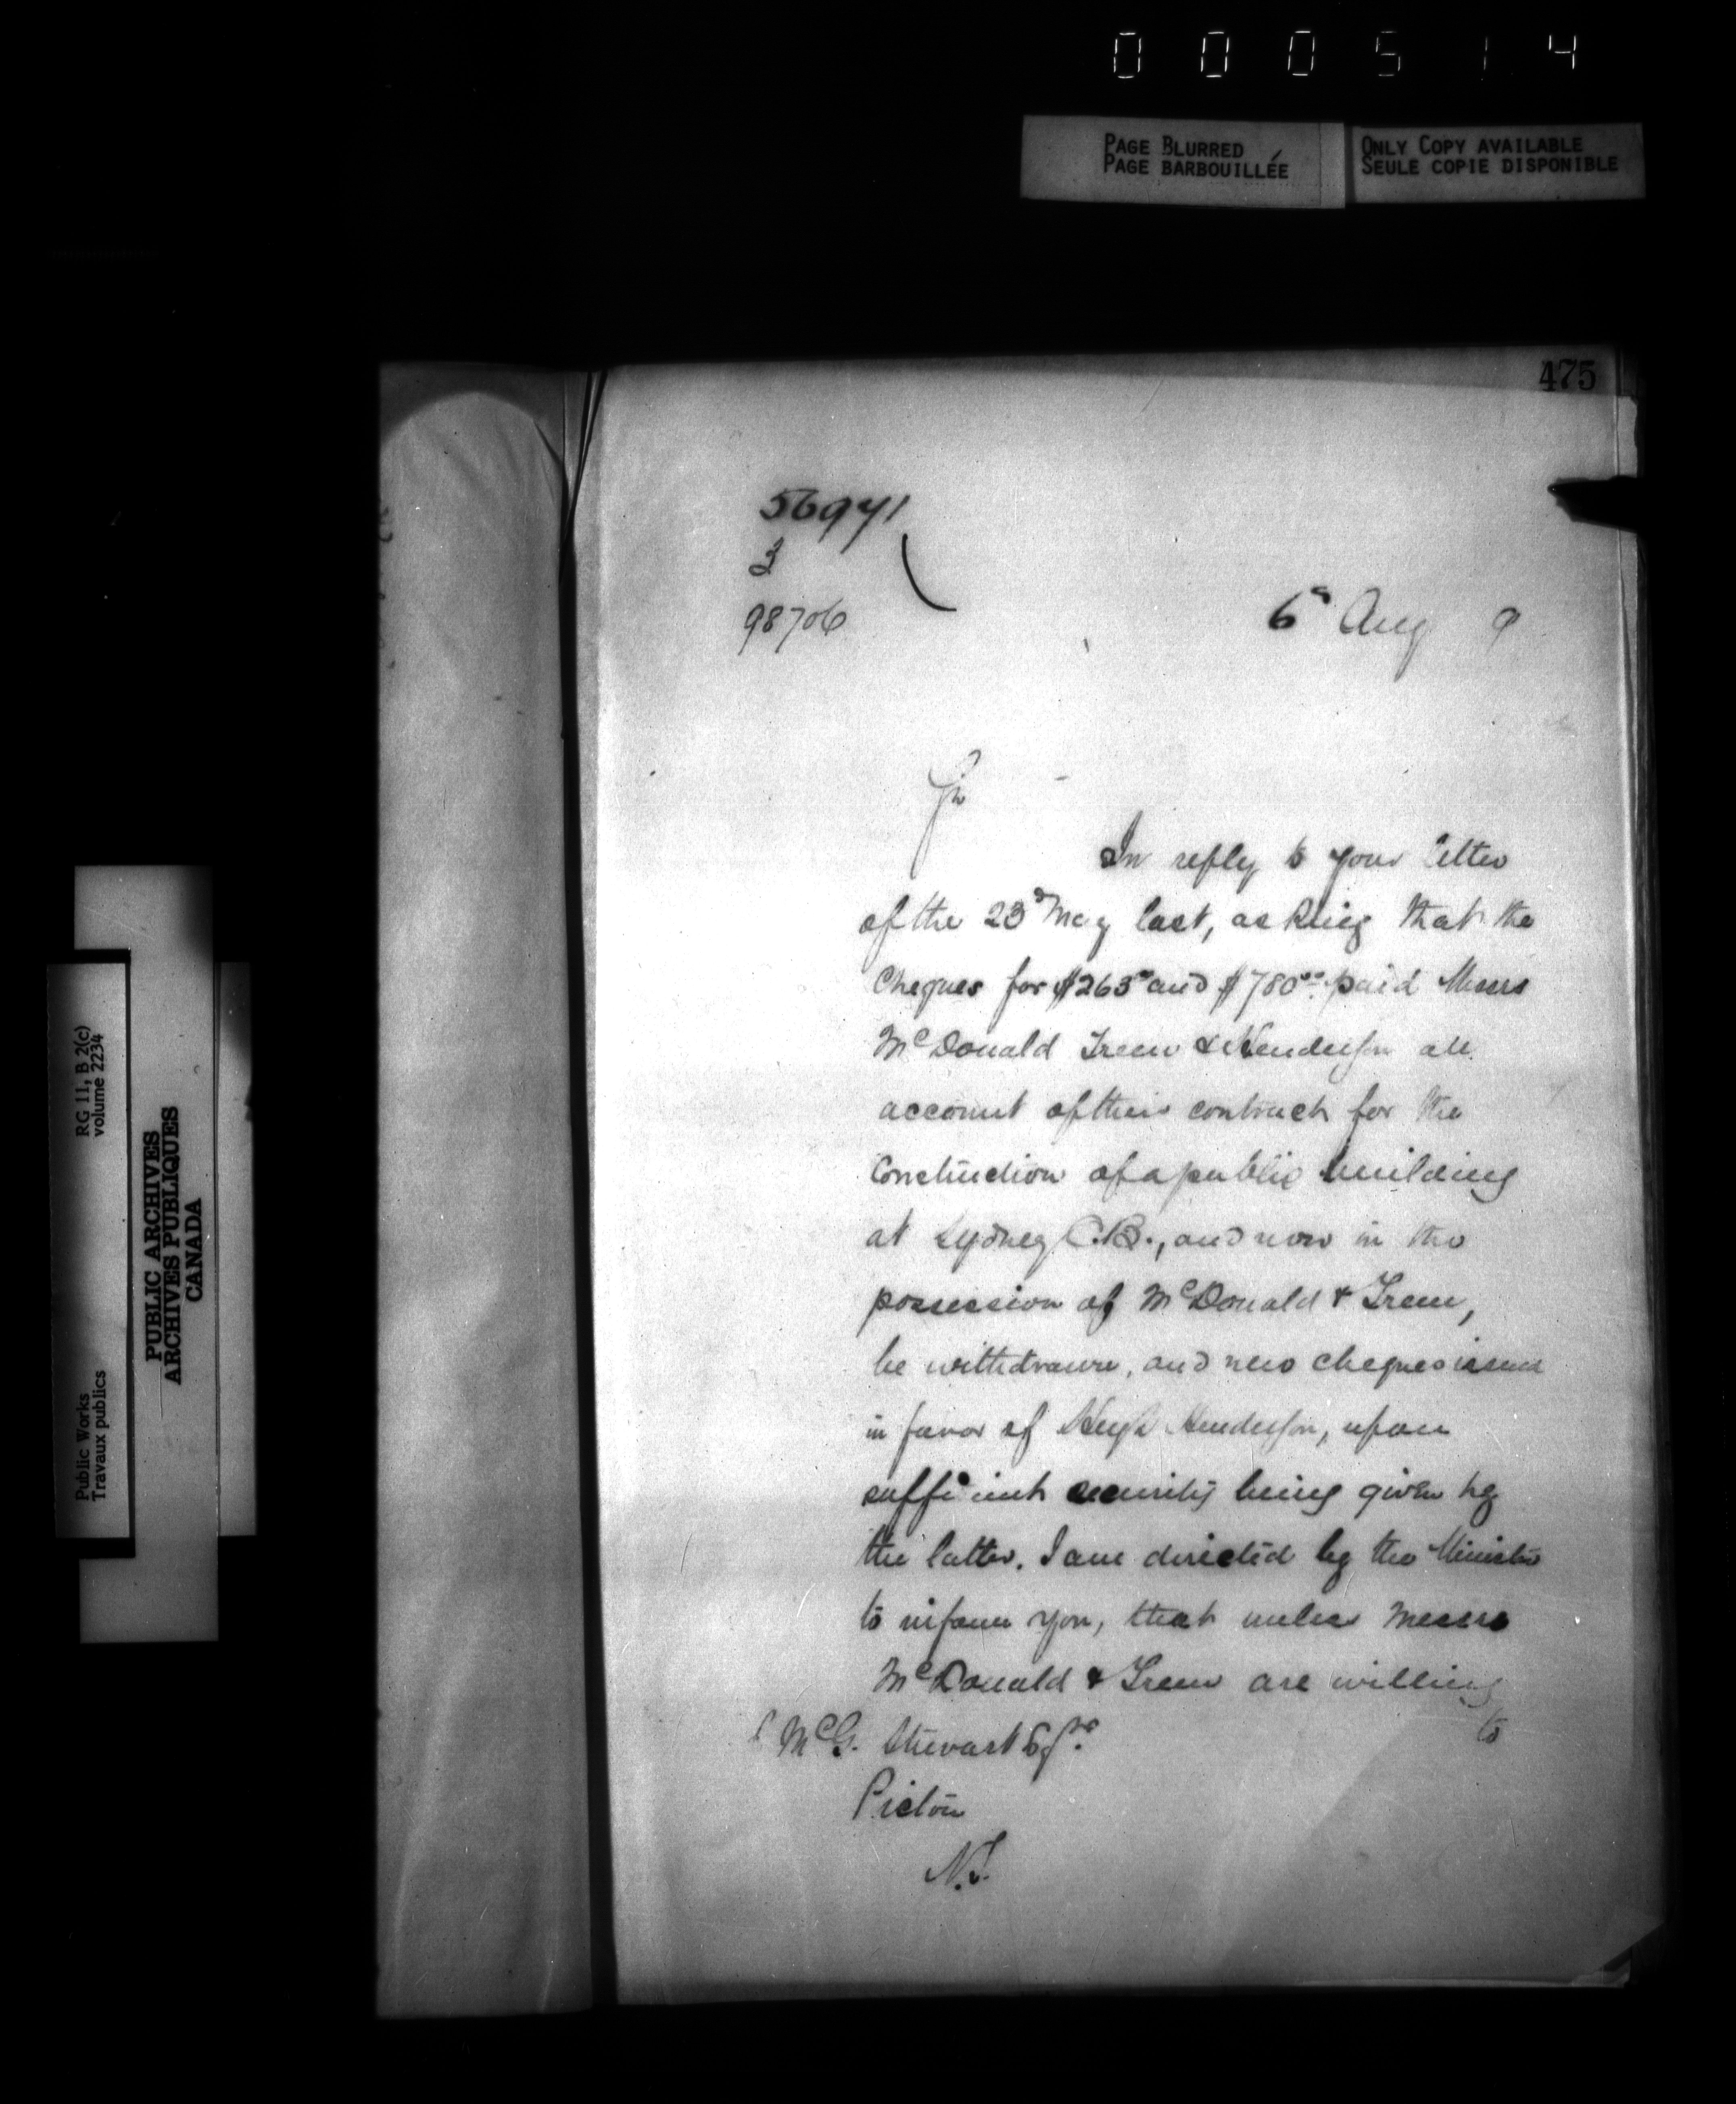 000514
PAGE BLURRED
PAGE BARBOUILLÉE
ONLY COPY AVAILABLE
SEULE COPIE DISPONIBLE
475
56941
3
98706
6th Aug 9
Sir
In reply to your letter
of the 23d May last, asking that the
Cheques for $263 00 and $780 00 paid Messrs
McDonald & Henderson
account of their contract for the
Construction of a public building
at Sydney C.B., and now in the
possession of McDonald &
be withdrawn, and new cheques issued
in favor of Hugh Henderson, upon
sufficient security being given by
the latter. I am directed by the Minister
to inform you, that unless Messrs
McDonald & are willing
to
McG. Stewart Esqre
Pictou
N.S.
Public Works
Travaux publics
RG 11, B 2(c)
volume 2234
PUBLIC ARCHIVES
ARCHIVES PUBLIQUES
CANADA